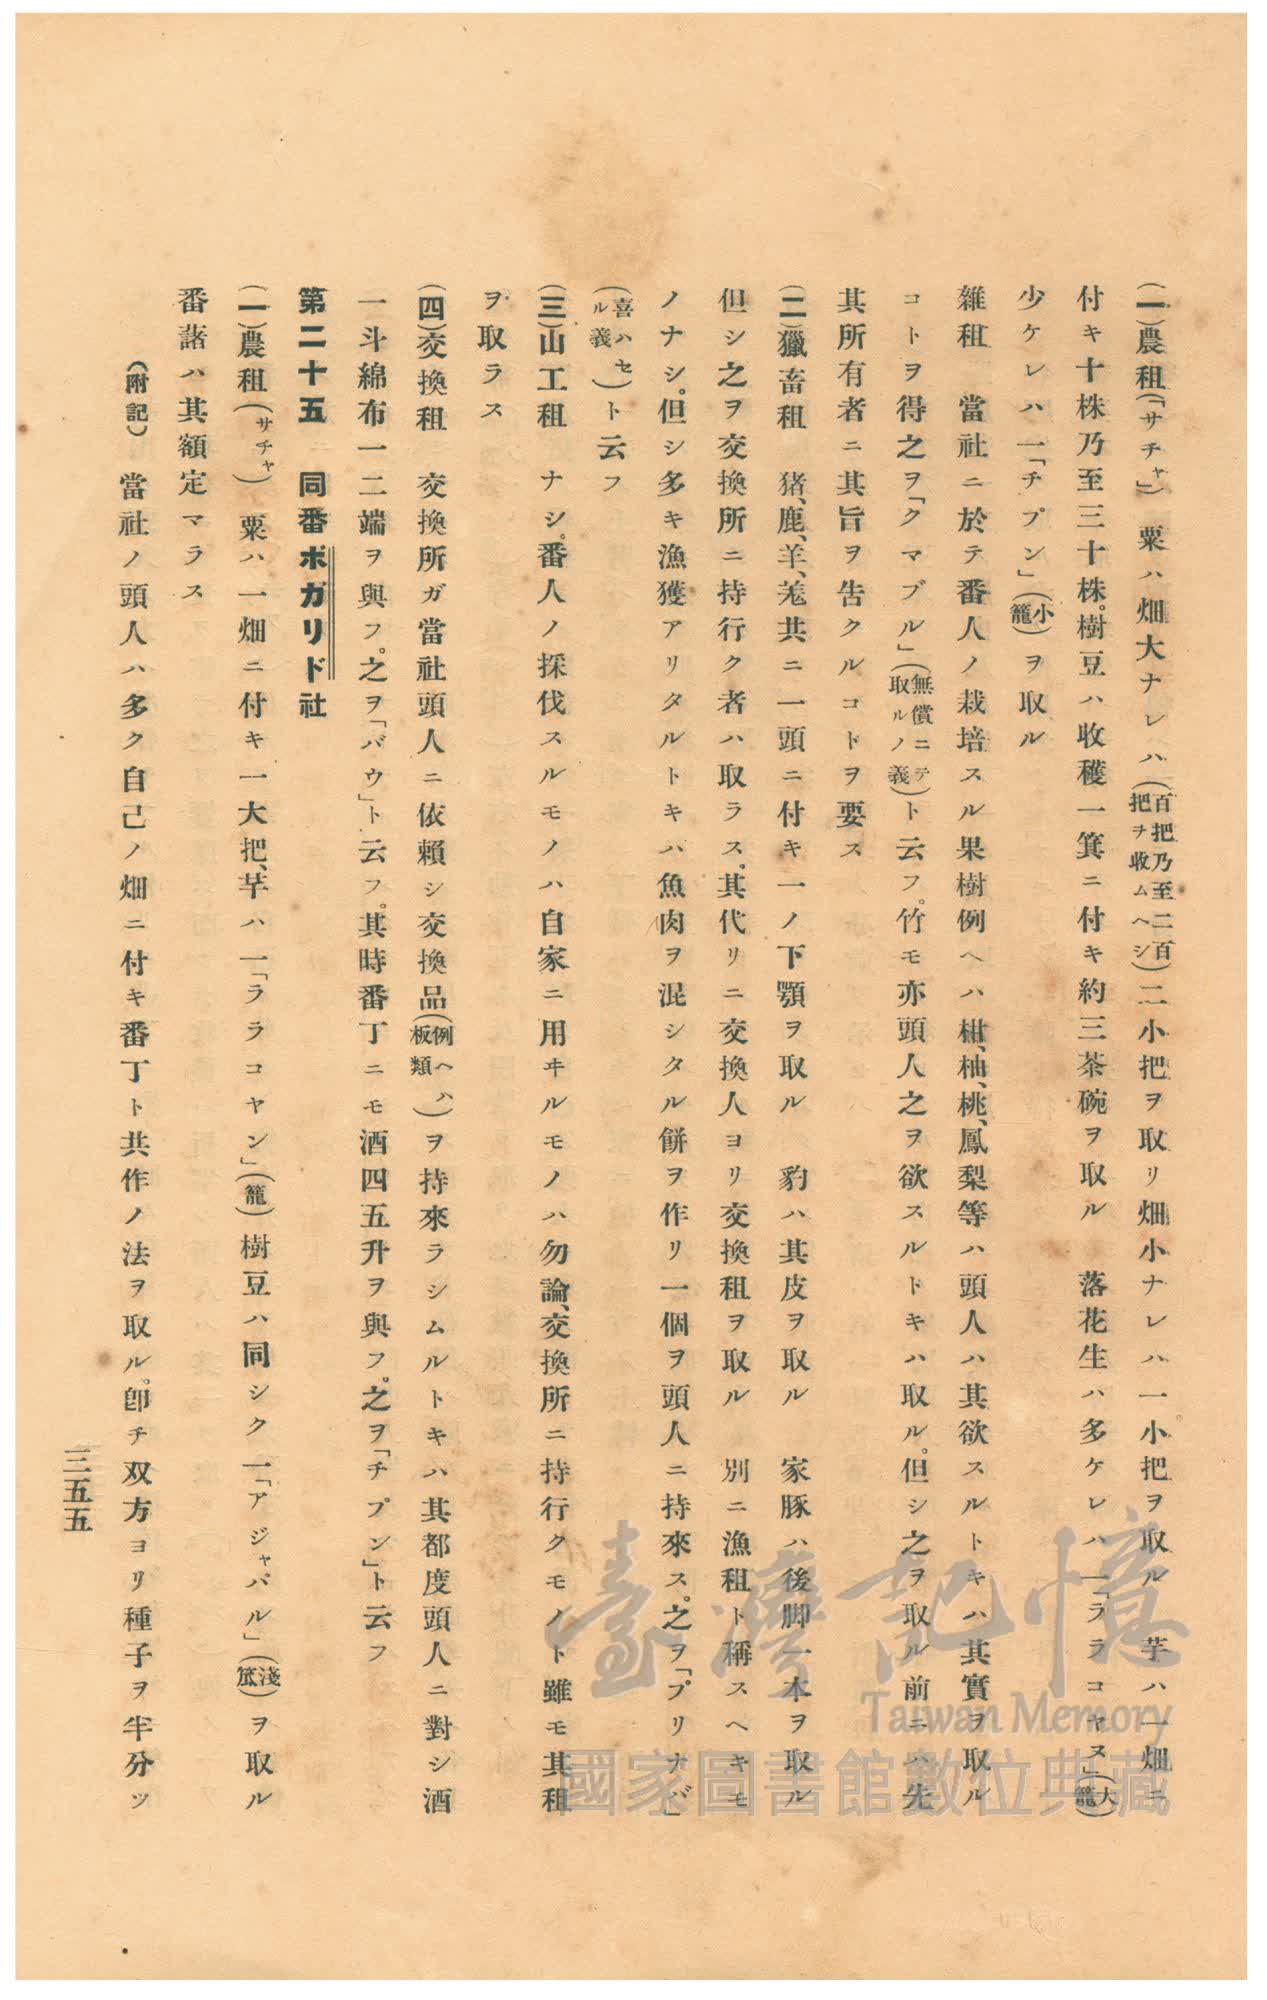 (一)農租(「サチャ」) 粟ハ畑大ナレハ(百把乃至二百把ヲ收ムヘシ)二小把ヲ取リ畑小ナレハ一小把ヲ取ル 芋ハ一畑ニ
付キ十株乃至三十株。樹豆ハ收穫一箕ニ付キ約三茶碗ヲ取ル 落花生ハ多ケレハ一「ララコヤヌ」(大籠)
少ケレハ一「チプン」(小籠)ヲ取ル
雜租 當社ニ於テ番人ノ栽培スル果樹例ヘハ柑、柚、桃、鳳梨等ハ頭人ハ其欲スルトキハ其實ヲ取ル
コトヲ得之ヲ「クマブル」(無償ニテ取ルノ義)ト云フ。竹モ亦頭人之ヲ欲スルトキハ取ル。但シ之ヲ取ル前ニハ先
其所有者ニ其旨ヲ告クルコトヲ要ス
(二)獵畜租 猪、鹿、羊、羗共ニ一頭ニ付キ一ノ下顎ヲ取ル 豹ハ其皮ヲ取ル 家豚ハ後脚一本ヲ取ル
但シ之ヲ交換所ニ持行ク者ハ取ラス。其代リニ交換人ヨリ交換租ヲ取ル 別ニ漁租ト稱スヘキモ
ノナシ。但シ多キ漁獲アリタルトキハ魚肉ヲ混シタル餅ヲ作リ一個ヲ頭人ニ持來ス。之ヲ「プリナバ」
(喜ハセル義)ト云フ
(三)山工租 ナシ。番人ノ採伐スルモノハ自家ニ用ヰルモノハ勿論、交換所ニ持行クモノト雖モ其租
ヲ取ラス
(四)交換租 交換所ガ當社頭人ニ依賴シ交換品(例ヘハ板類)ヲ持來ラシムルトキハ其都度頭人ニ對シ酒
一斗綿布一二端ヲ與フ。之ヲ「バウ」ト云フ。其時番丁ニモ酒四五升ヲ與フ。之ヲ「チプン」ト云フ
第二十五 同番ボガリド社
(一)農租(サチャ) 粟ハ一畑ニ付キ一大把、芋ハ一「ララコヤン」(籠)樹豆ハ同シク一「アジャパル」(淺笊)ヲ取ル
番藷ハ其額定マラス
(附記) 當社ノ頭人ハ多ク自己ノ畑ニ付キ番丁ト共作ノ法ヲ取ル。卽チ双方ヨリ種子ヲ半分ツ
三五五
臺灣記憶
Taiwan Memory
國家圖書館數位典藏